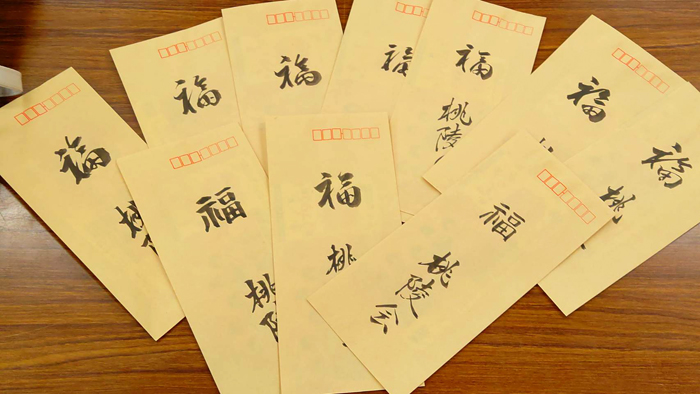 福
福
福
福
桃陵
福
福
福
桃
福
桃
福
桃
福
桃
福
桃陵会